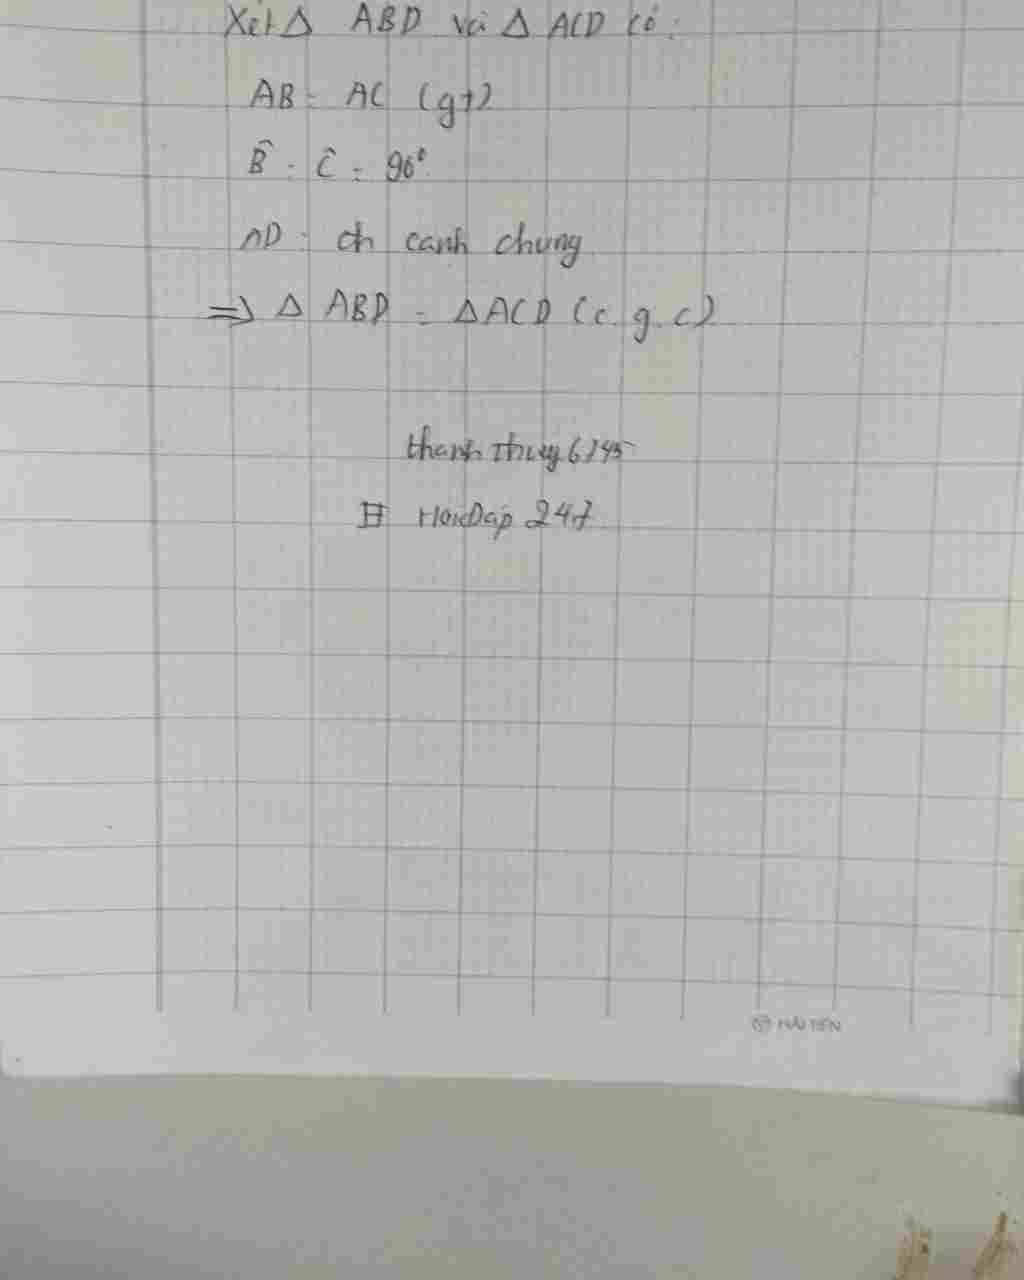 Xét Δ ABD và Δ ACD có:
AB = AC (gt)
B̂ = Ĉ = 90°
AD : ch cạnh chung
=> Δ ABD = Δ ACD (c.g.c)
thanh thuy 61945
# HoiDap 247
HẢI TIẾN